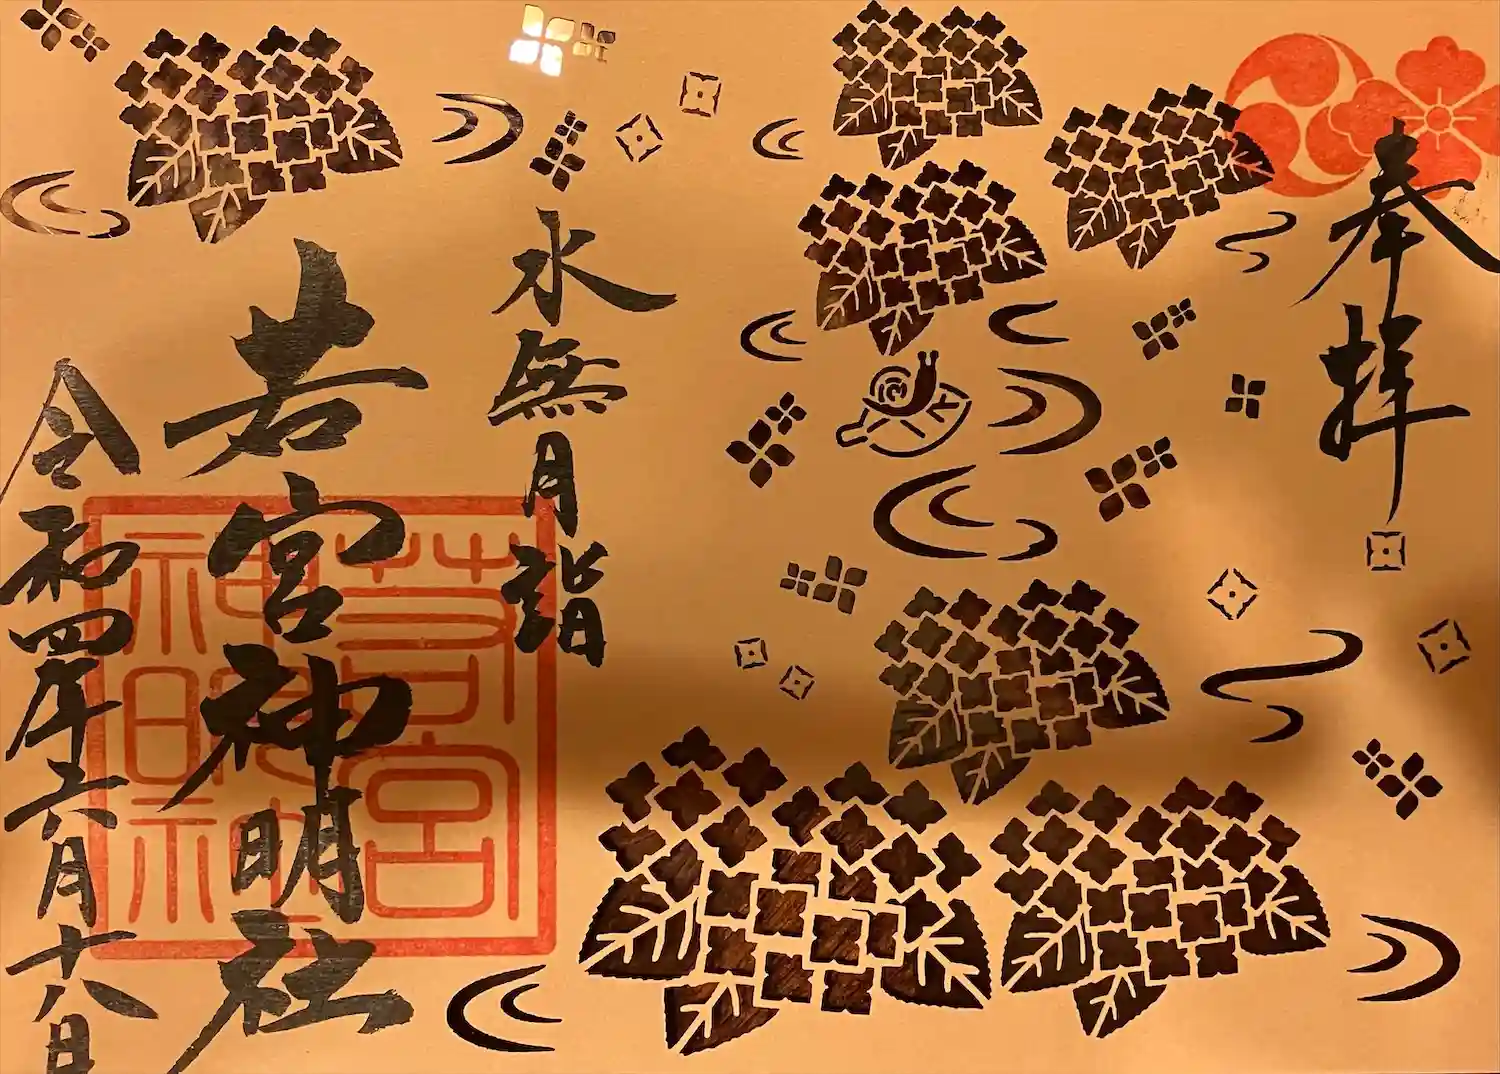 奉拝
水無月詣
若宮神明社
若宮神明社
令和四年六月十八日